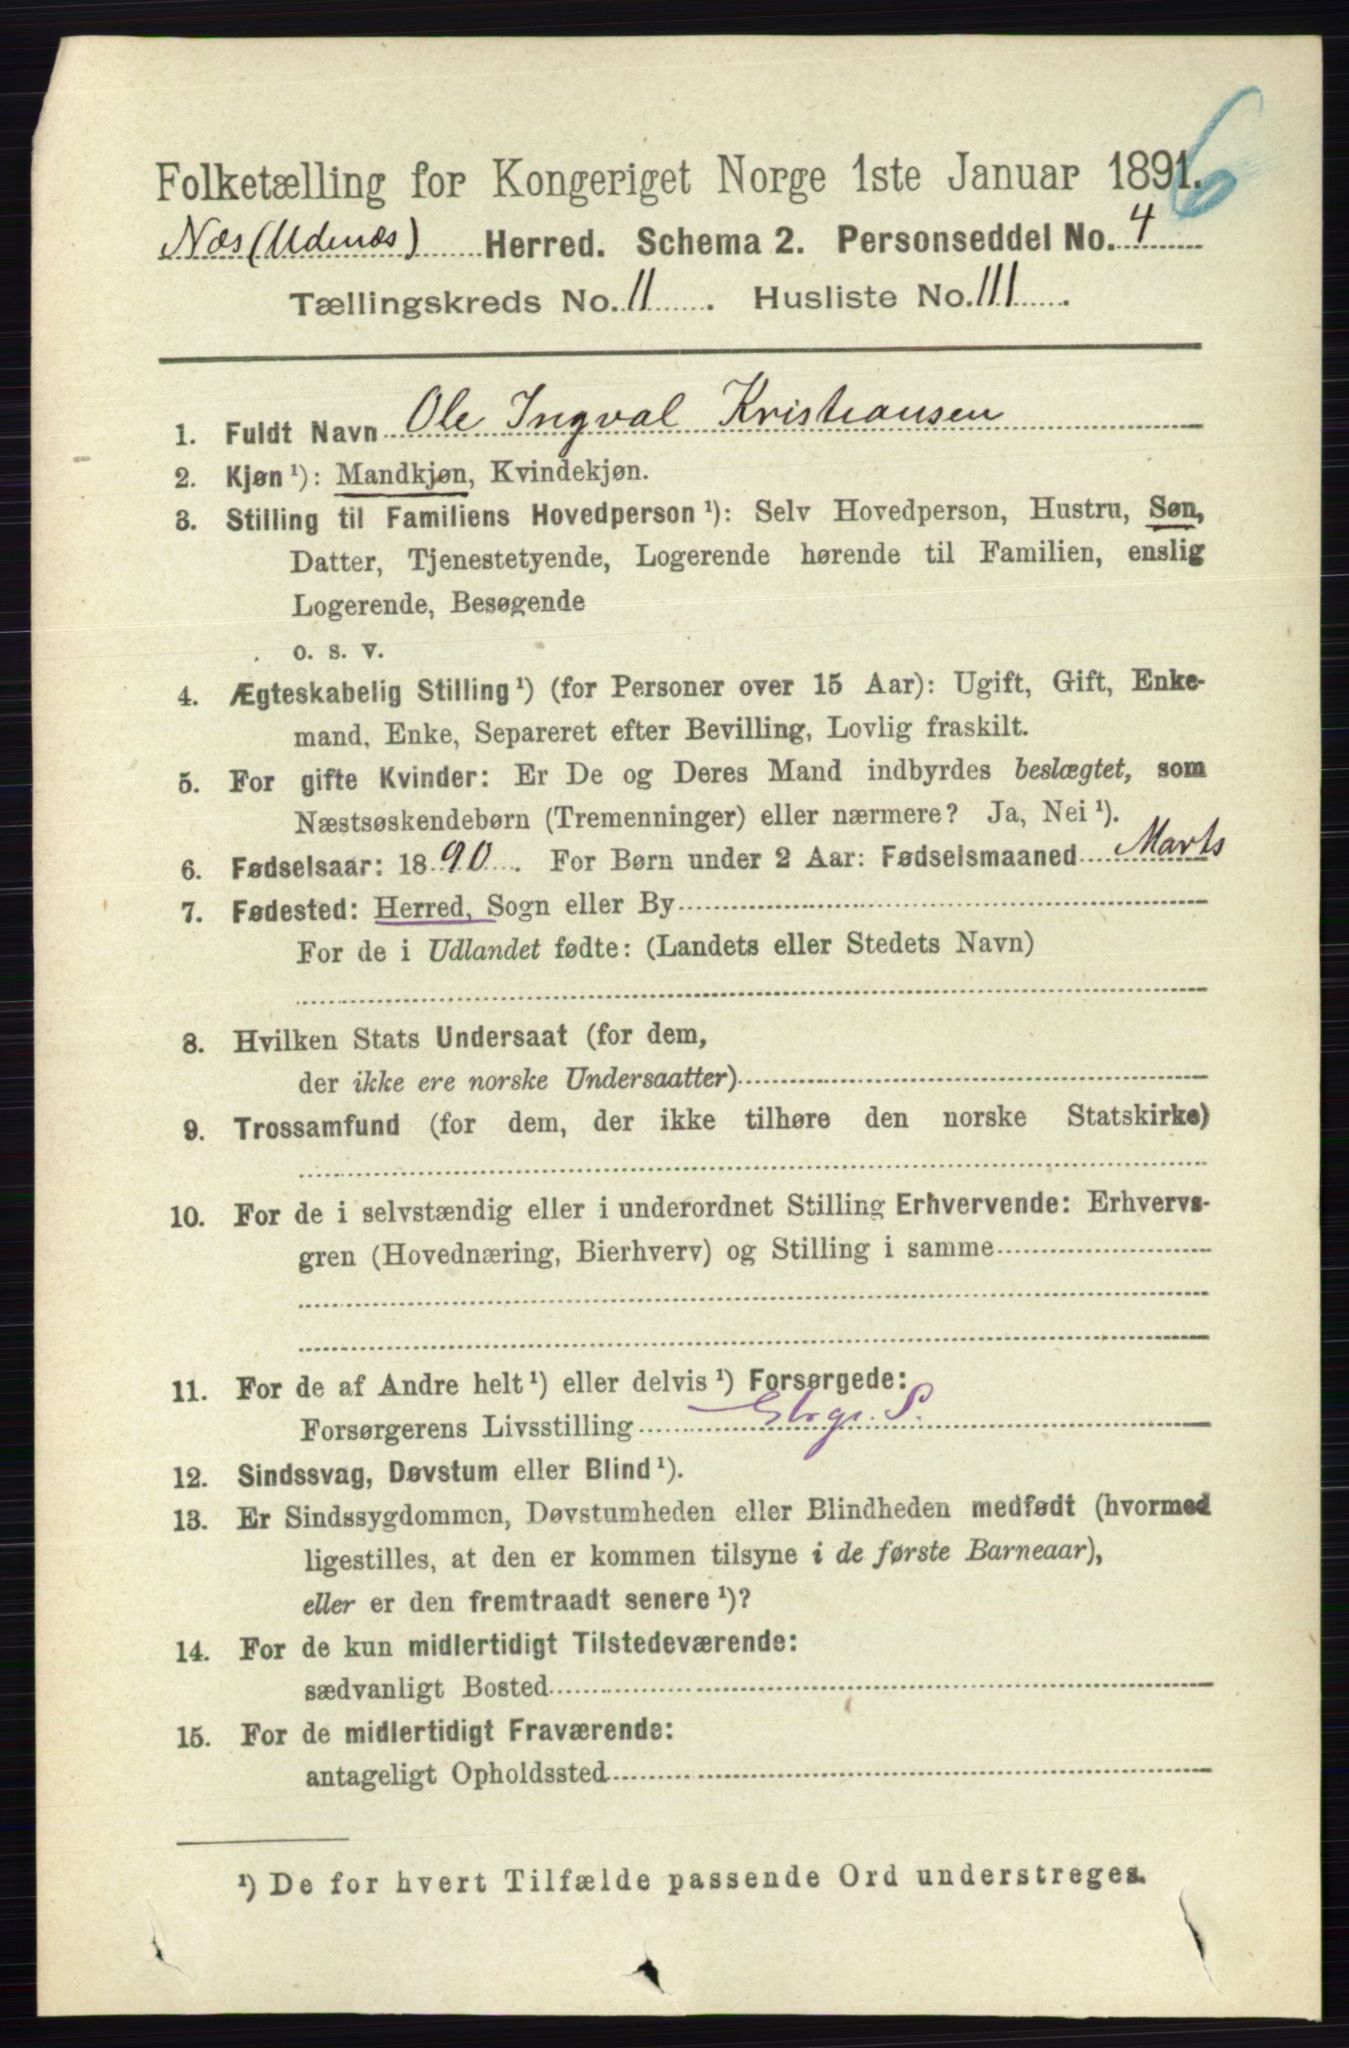 6
Folketælling for Kongeriget Norge 1ste Januar 1891.
Næs (Udenæs) Herred. Schema 2. Personseddel No. 4
Tællingskreds No. 11. Husliste No. 111.
1. Fuldt Navn Ole Ingval Kristiansen
2. Kjøn ¹): Mandkjøn, Kvindekjøn.
3. Stilling til Familiens Hovedperson ¹): Selv Hovedperson, Hustru, Søn,
Datter, Tjenestetyende, Logerende hørende til Familien, enslig
Logerende, Besøgende
o. s. v.
4. Ægteskabelig Stilling ¹) (for Personer over 15 Aar): Ugift, Gift, Enke-
mand, Enke, Separeret efter Bevilling, Lovlig fraskilt.
5. For gifte Kvinder: Er De og Deres Mand indbyrdes beslægtet, som
Næstsøskendebørn (Tremenninger) eller nærmere? Ja, Nei ¹).
6. Fødselsaar: 1890. For Børn under 2 Aar: Fødselsmaaned Marts
7. Fødested: Herred, Sogn eller By
For de i Udlandet fødte: (Landets eller Stedets Navn)
8. Hvilken Stats Undersaat (for dem,
der ikke ere norske Undersaatter)
9. Trossamfund (for dem, der ikke tilhøre den norske Statskirke)
10. For de i selvstændig eller i underordnet Stilling Erhvervende: Erhvervs-
gren (Hovednæring, Bierhverv) og Stilling i samme
11. For de af Andre helt ¹) eller delvis ¹) Forsørgede:
Forsørgerens Livsstilling S.
12. Sindssvag, Døvstum eller Blind ¹).
13. Er Sindssygdommen, Døvstumheden eller Blindheden medfødt (hvormed
ligestilles, at den er kommen tilsyne i de første Barneaar),
eller er den fremtraadt senere ¹)?
14. For de kun midlertidigt Tilstedeværende:
sædvanligt Bosted
15. For de midlertidigt Fraværende:
antageligt Opholdssted
¹) De for hvert Tilfælde passende Ord understreges.